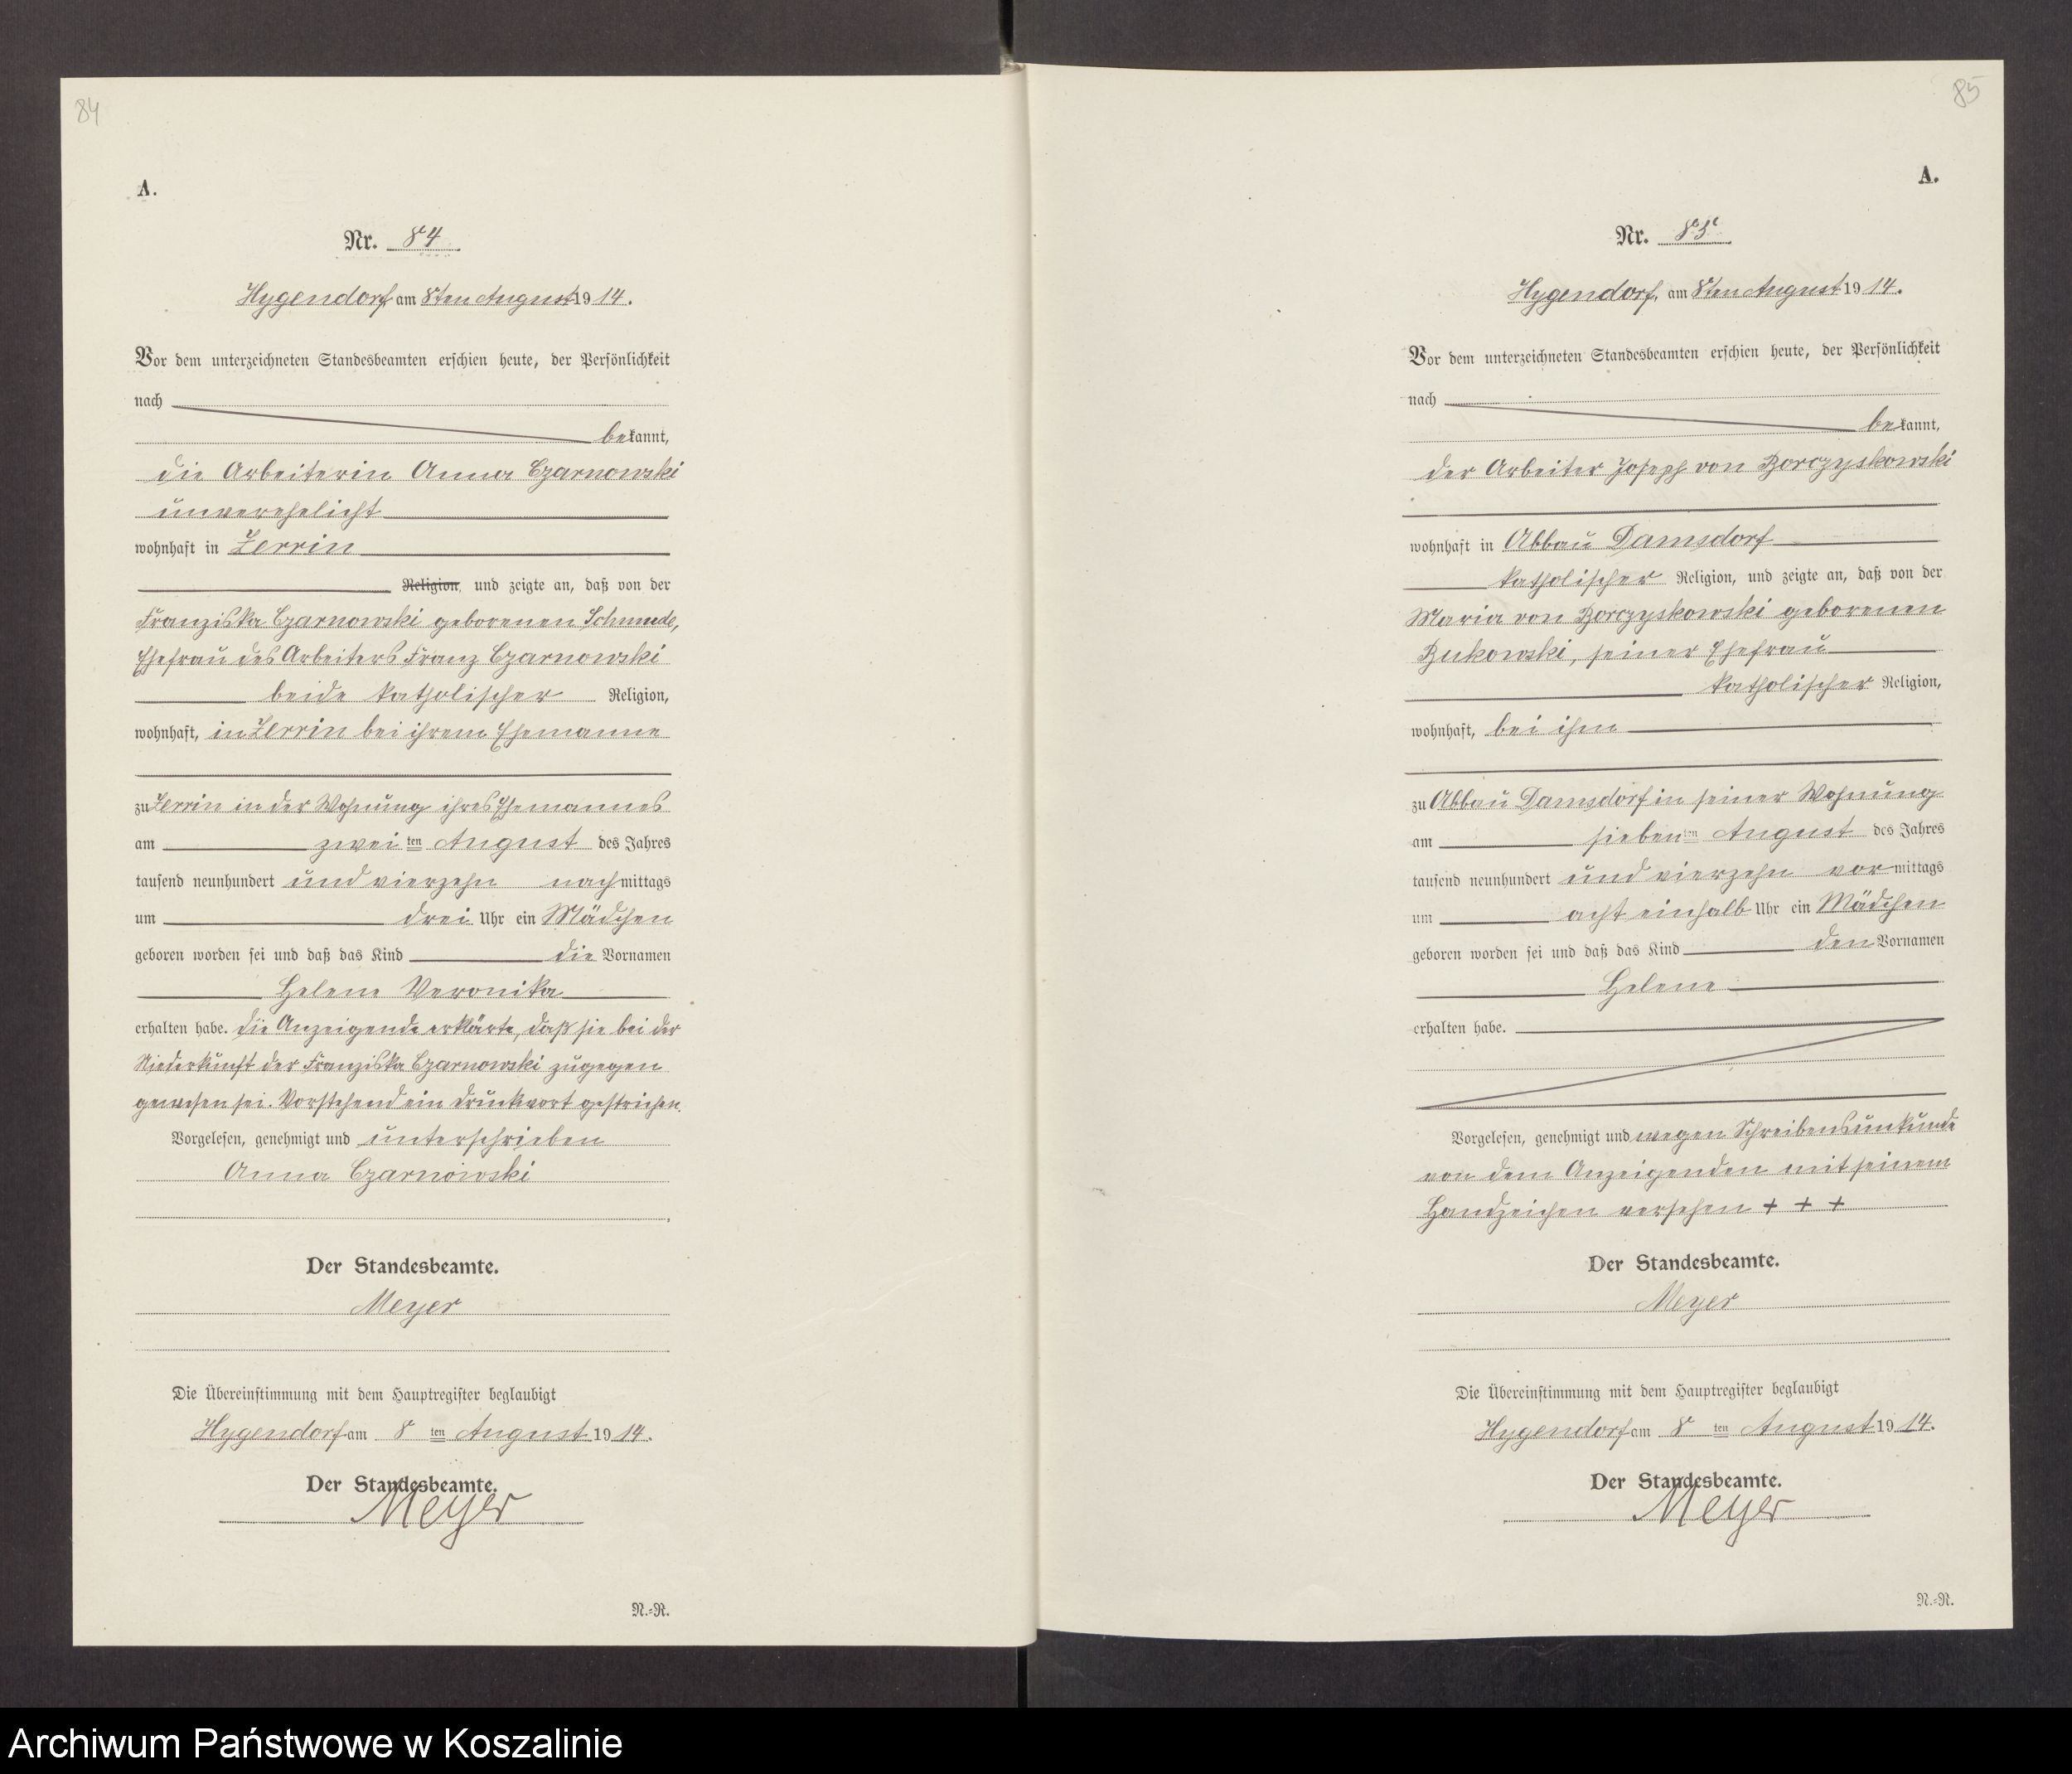 84
A.
Nr. 84
Hygendorf am 8ten August 1914.
Vor dem unterzeichneten Standesbeamten erschien heute, der Persönlichkeit
nach
bekannt,
die Arbeiterin Anna Czarnowski
unverehelicht
wohnhaft in Zerrin
Religion, und zeigte an, daß von der
Franziska Czarnowski geborenen
Ehefrau des Arbeiters Franz Czarnowski
beide katholischer Religion,
wohnhaft, in Zerrin bei ihrem Ehemanne
zu Zerrin in der Wohnung ihres Ehemannes
am zweiten August des Jahres
tausend neunhundert und vierzehn nachmittags
um drei Uhr ein Mädchen
geboren worden sei und daß das Kind die Vornamen
Helene Veronika
erhalten habe. Die Anzeigende erklärte, daß sie bei der
Niederkunft der Franziska Czarnowski zugegen
gewesen sei. Vorstehend ein Druckwort gestrichen.
Vorgelesen, genehmigt und unterschrieben
Anna Czarnowski
Der Standesbeamte.
Meyer
Die Übereinstimmung mit dem Hauptregister beglaubigt
Hygendorf am 8ten August 1914.
Der Standesbeamte.
Meyer
N.-R.
85
A.
Nr. 85
Hygendorf, am 8ten August 1914.
Vor dem unterzeichneten Standesbeamten erschien heute, der Persönlichkeit
nach
bekannt,
der Arbeiter Joseph von Borczyskowski
wohnhaft in Abbau Damsdorf
katholischer Religion, und zeigte an, daß von der
Maria von Borczyskowski geborenen
Bukowski, seiner Ehefrau
katholischer Religion,
wohnhaft, bei ihm
zu Abbau Damsdorf in seiner Wohnung
am siebenten August des Jahres
tausend neunhundert und vierzehn vormittags
um acht einhalb Uhr ein Mädchen
geboren worden sei und daß das Kind den Vornamen
Helene
erhalten habe.
Vorgelesen, genehmigt und wegen Schreibensunkunde
von dem Anzeigenden mit seinem
Handzeichen versehen + + +
Der Standesbeamte.
Meyer
Die Übereinstimmung mit dem Hauptregister beglaubigt
Hygendorf am 8ten August 1914.
Der Standesbeamte.
Meyer
N.-R.
Archiwum Państwowe w Koszalinie